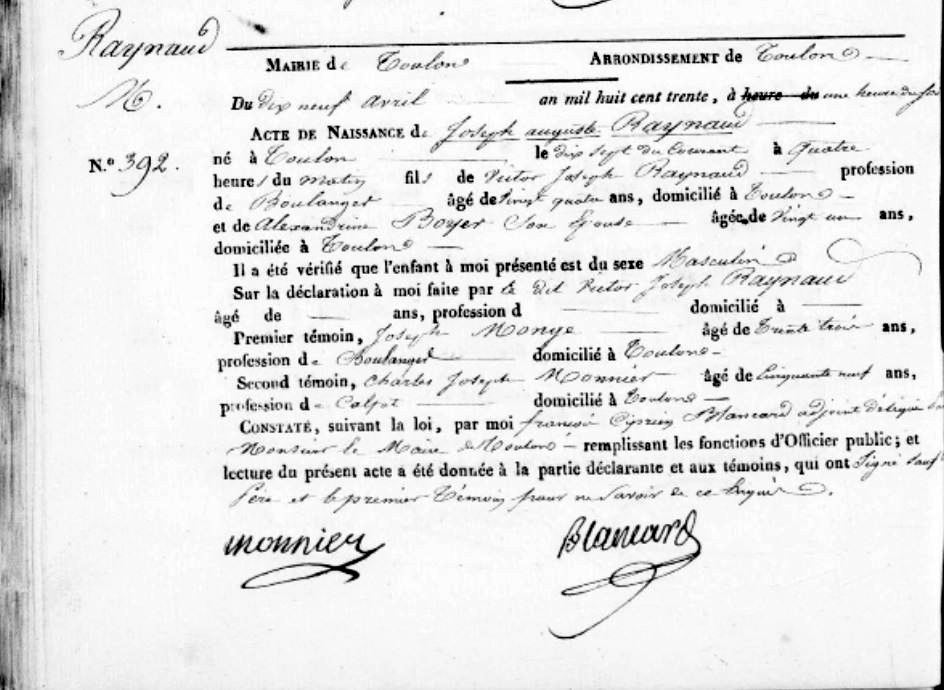 Raynaud
MAIRIE de Toulon ARRONDISSEMENT de Toulon
M.
Du dix neuf avril an mil huit cent trente, à heure du une heure du soir
ACTE DE NAISSANCE de Joseph auguste Raynaud
N.º 392.
né à Toulon le dix sept du Courant à quatre
heures du matin fils de Victor Joseph Raynaud profession
de Boulanger âgé de vingt quatre ans, domicilié à Toulon
et de Alexandrine Boyer Son Epouse âgée de vingt un ans,
domiciliée à Toulon
Il a été vérifié que l'enfant à moi présenté est du sexe Masculin
Sur la déclaration à moi faite par le dit Victor Joseph Raynaud
âgé de ans, profession d domicilié à
Premier témoin, Joseph Monge âgé de trente trois ans,
profession de Boulanger domicilié à Toulon
Second témoin, Charles Joseph Monnier âgé de Cinquante neuf ans,
profession de Calfat domicilié à Toulon
CONSTATÉ, suivant la loi, par moi françois Ciprien Blancard adjoint délégué
Monsieur le Maire de Toulon remplissant les fonctions d'Officier public; et
lecture du présent acte a été donnée à la partie déclarante et aux témoins, qui ont Signé sauf
Père et le premier Témoin pour ne Savoir de ce Enquis
Monnier Blancard